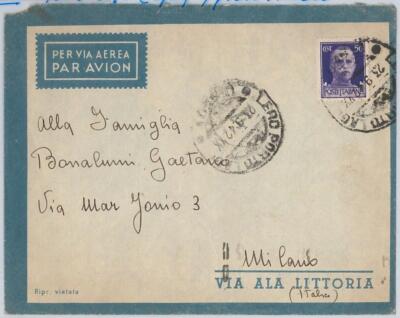 PER VIA AEREA
PAR AVION
50
POSTE ITALIANE
LERO PORTO LAGO
Alla Famiglia
Bonalumi Gaetano
Via Mar Jonio 3
Milano
VIA ALA LITTORIA
(Italia)
Ripr. vietata